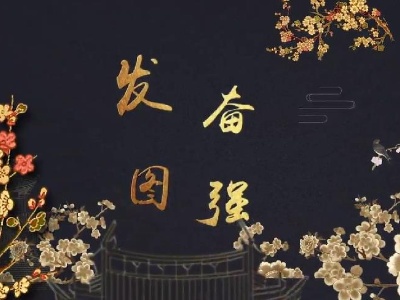 发奋
图强